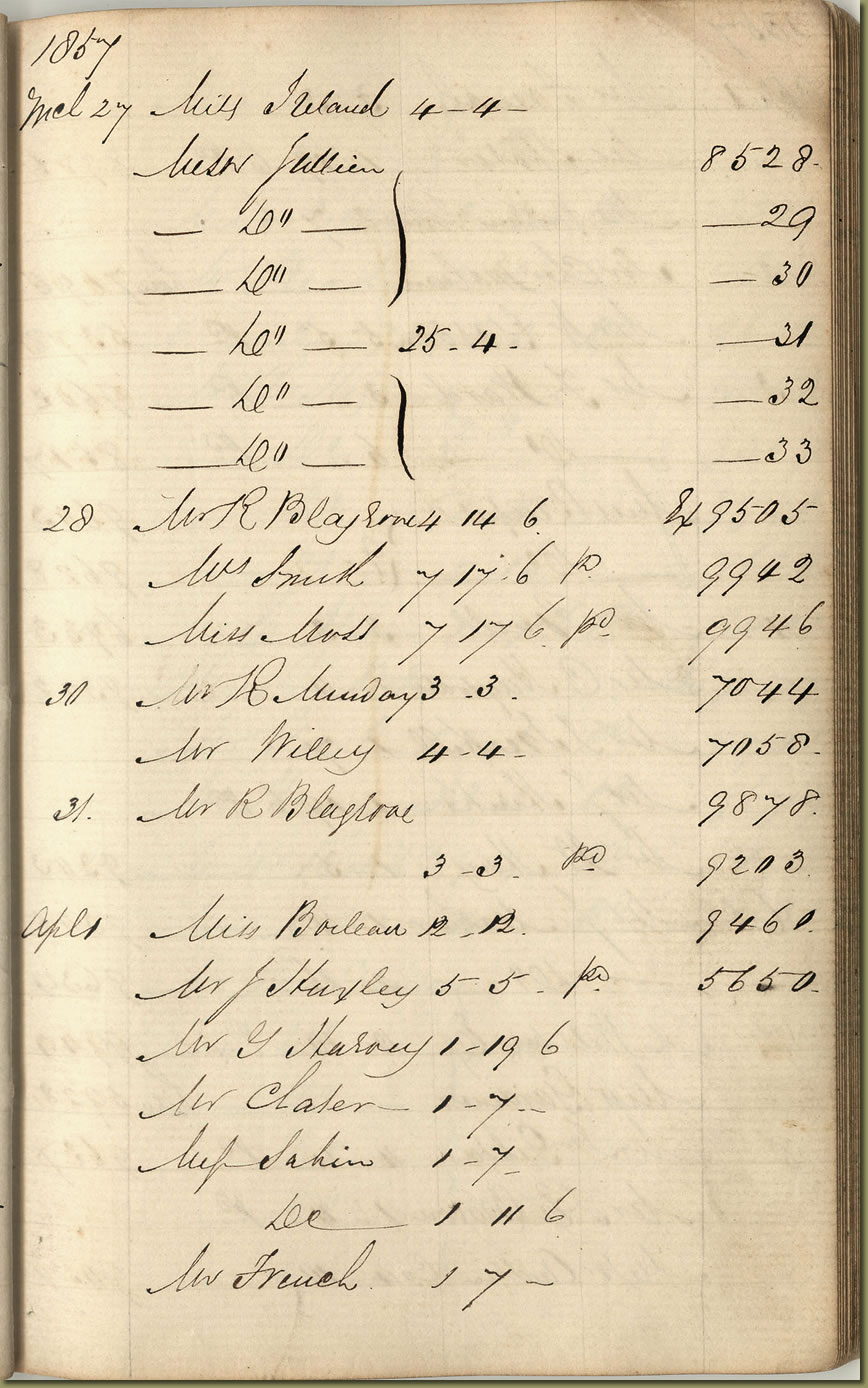 1857
Mch 27 Miss Ireland 4 - 4 -
Messrs Jullien 8528 -
— Do " — — 29
— Do " — — 30
— Do " — 25 - 4 - — 31
— Do " — — 32
— Do " — — 33
28 Mr R Blagrove 4 14 6 9505
Mrs Smith 7 17 6 p 9942
Miss Moss 7 17 6 pd 9946
30 Mr H Munday 3 - 3 - 7044
Mr Willey 4 - 4 - 7058 -
31. Mr R Blagrove 9878.
3 - 3 - pd 9203
Apl 1 Miss Boileau 12 - 12. 9460.
Mr J Huxley 5 5 - pd 5650.
Mr G Harvey 1 - 19 6
Mr Clater — 1 - 7 -
Sabin 1 - 7 -
Do — 1 11 6
Mr French. 1 7 -